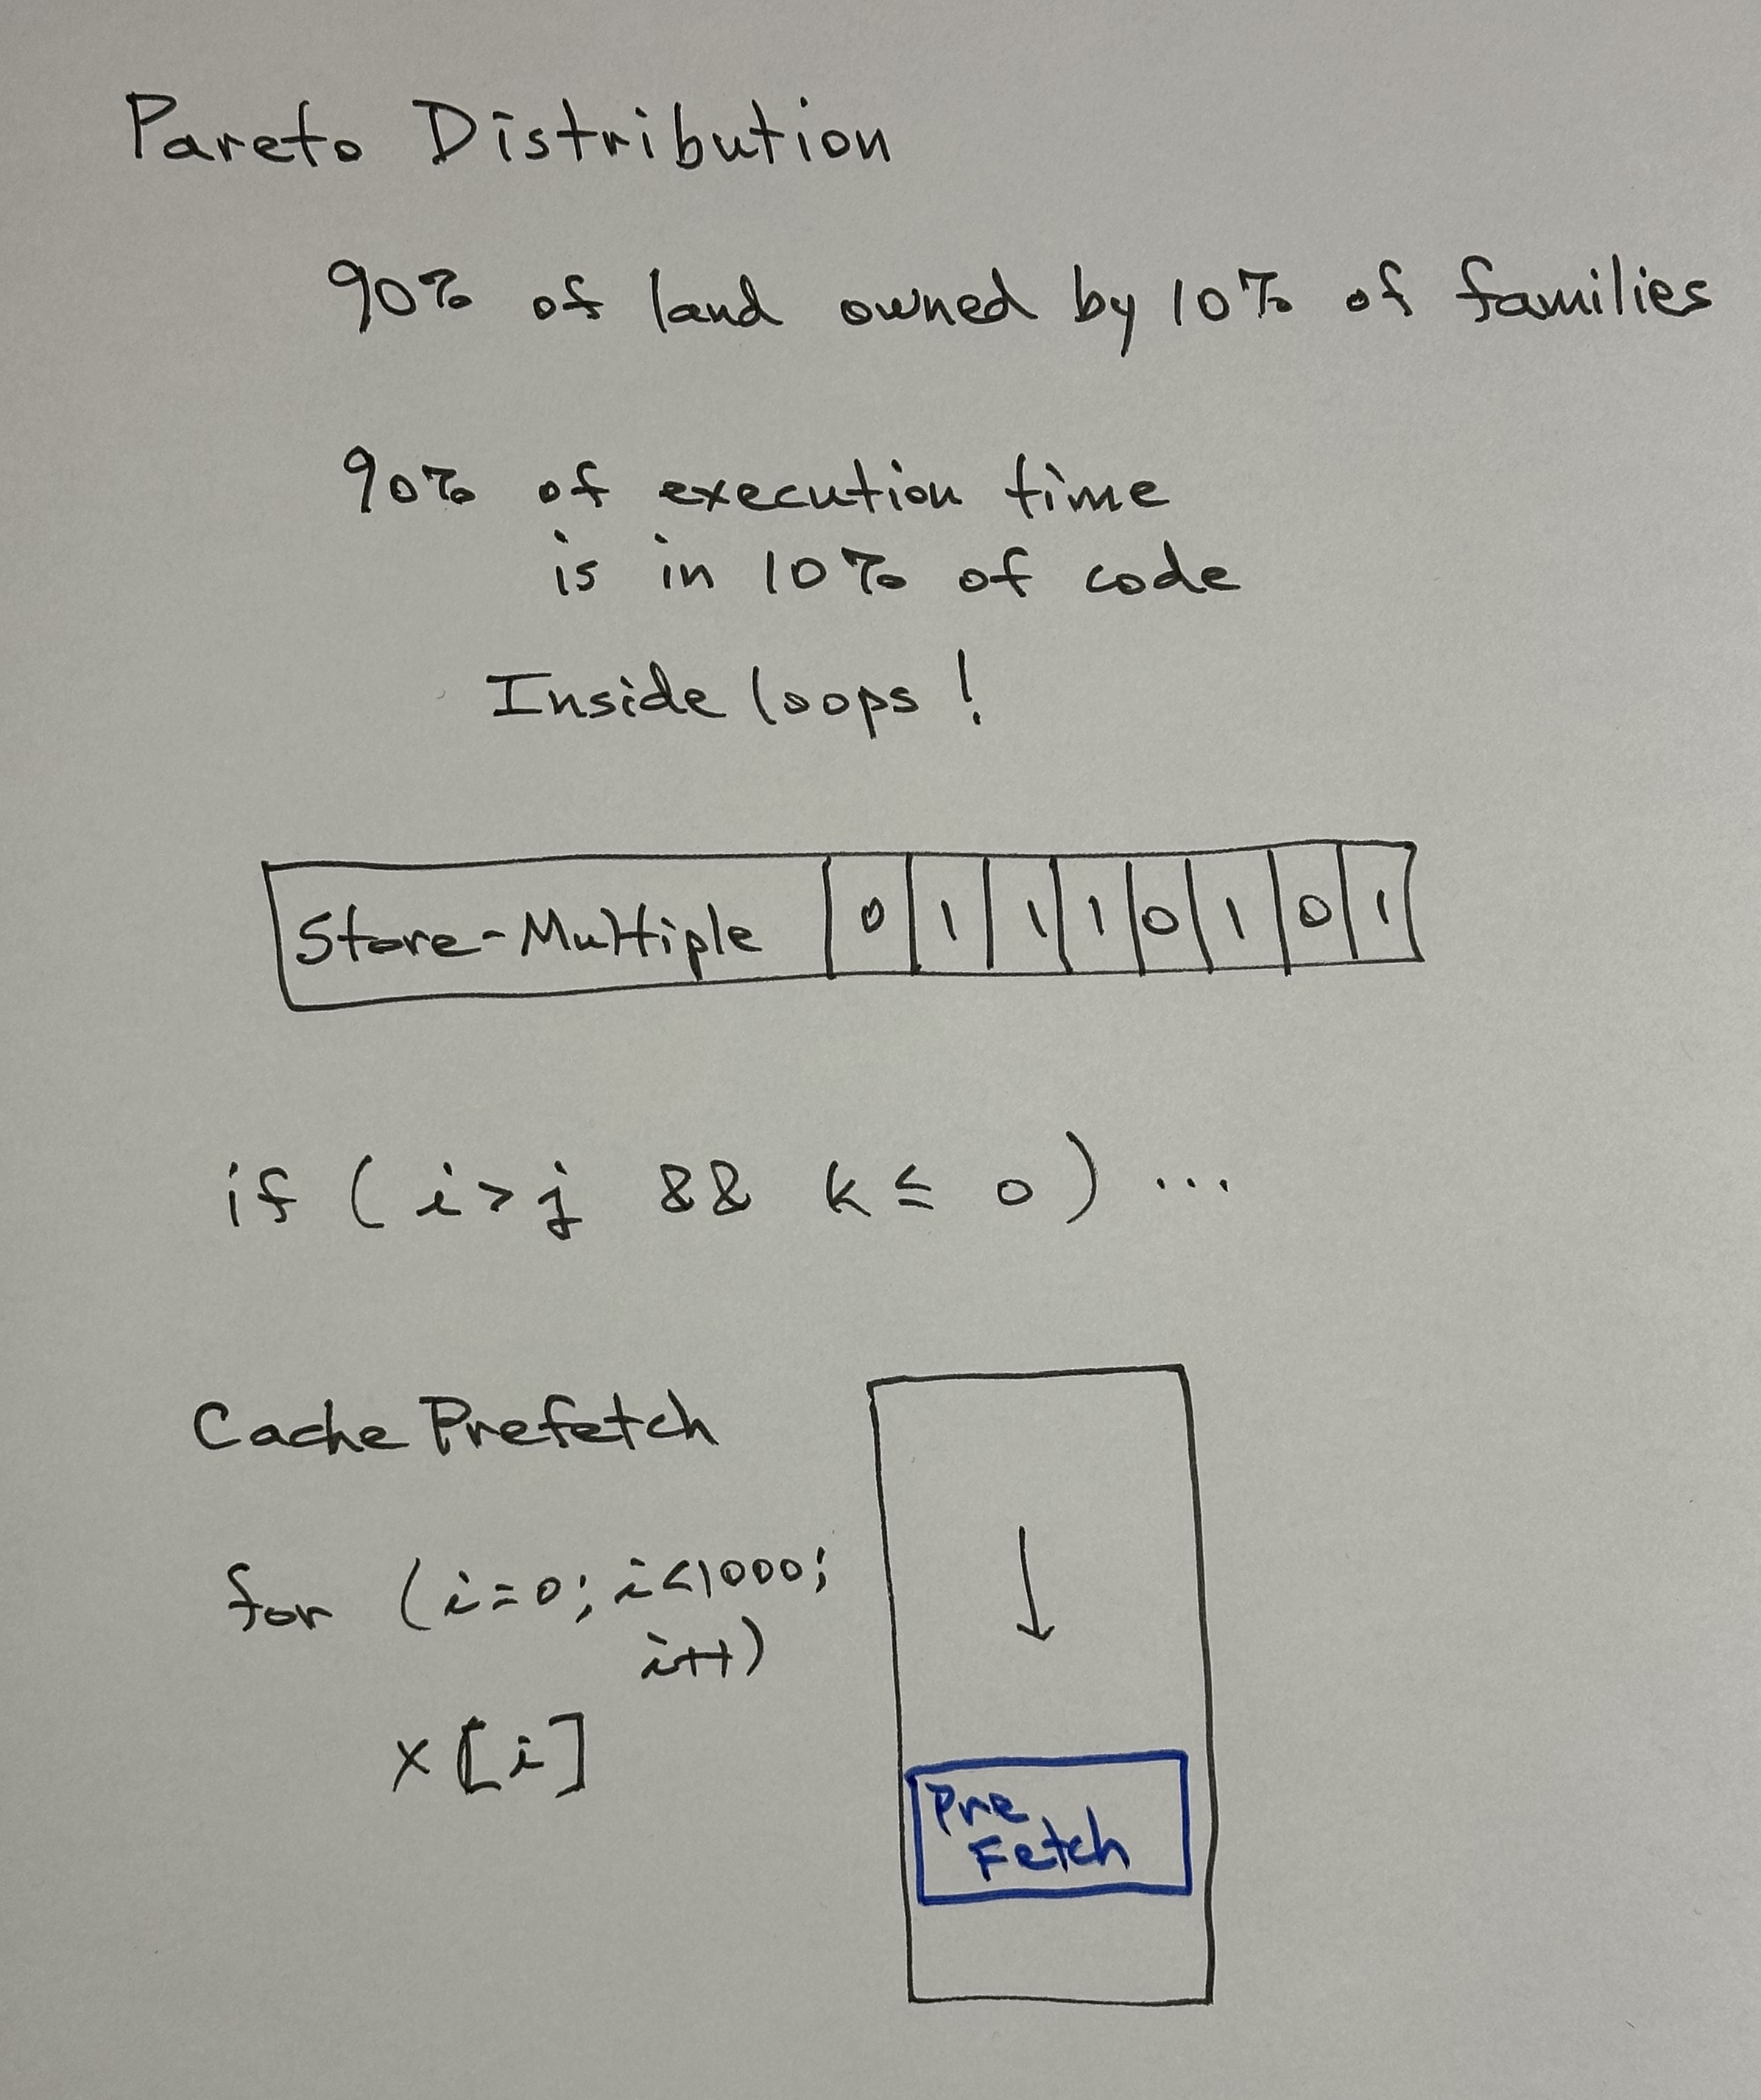 Pareto Distribution
90% of land owned by 10% of families
90% of execution time
is in 10% of code
Inside loops!
Store-Multiple 0 1 1 1 0 1 0 1
if (i>j && k ≤ 0) ...
Cache Prefetch
for (i=0; i<1000;
i++)
x[i]
Pre
Fetch